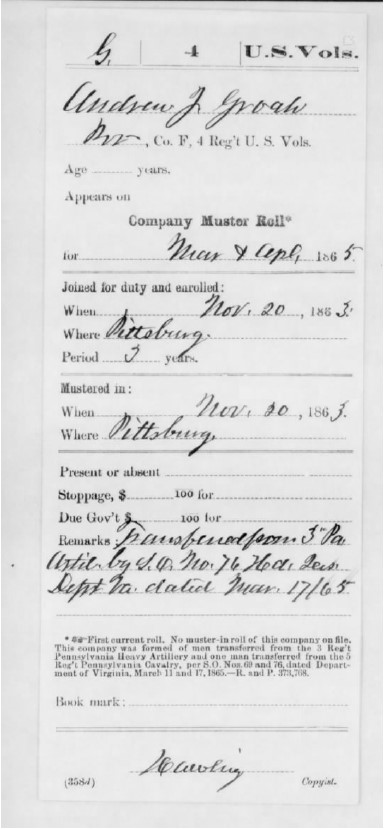 G | 4 | U.S. Vols.
Andrew J Groah
Pvt, Co. F, 4 Reg't U. S. Vols.
Age ........ years.
Appears on
Company Muster Roll*
for Mar & Apl, 1865.
Joined for duty and enrolled:
When Nov. 20, 1863.
Where Pittsburg.
Period 3 years.
Mustered in:
When Nov. 20, 1863.
Where Pittsburg.
Present or absent
Stoppage, $ 100 for
Due Gov't $ 100 for
Remarks: Transferred from 3" Pa
Artil. by S.O. No. 76 Hd.
Dept Va. dated Mar. 17/65
* First current roll. No muster-in roll of this company on file.
This company was formed of men transferred from the 3 Reg't
Pennsylvania Heavy Artillery and one man transferred from the 5
Reg't Pennsylvania Cavalry, per S.O. Nos. 69 and 76, dated Depart-
ment of Virginia, March 11 and 17, 1865.—R. and P. 373,768.
Book mark:
(358d) Copyist.